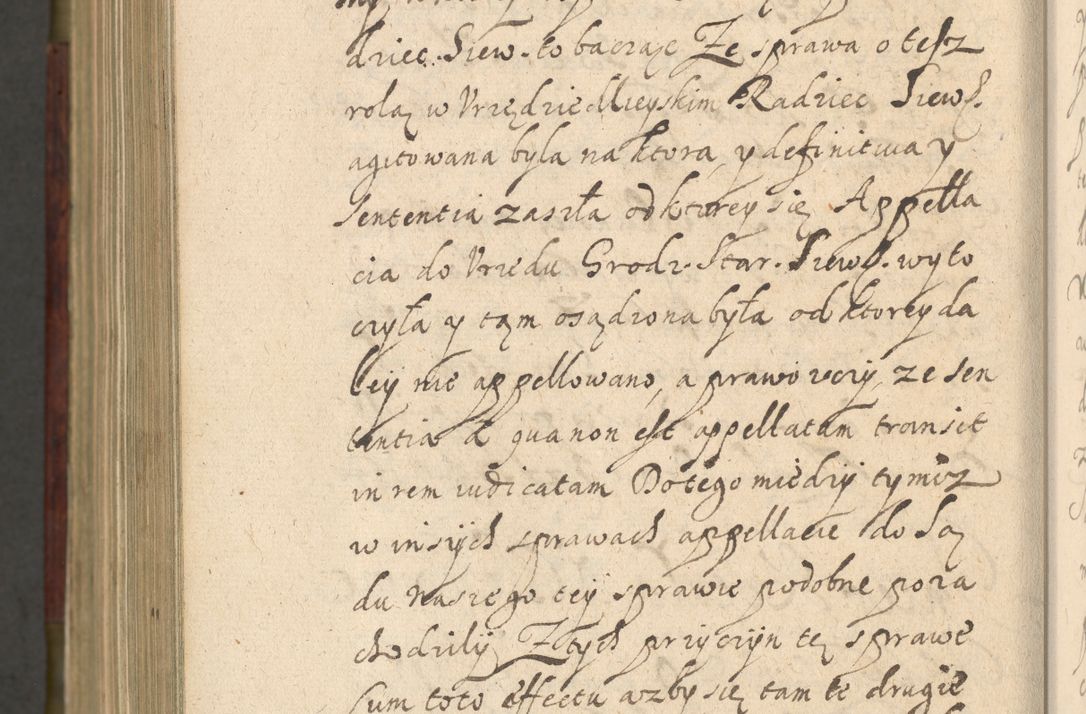 dziec. Siew. to bacząc Ze sprawa o tesz
rolą w Vrzędzie Mieyskim Radziec Siews.
agitowana byla na ktora y definitiua y
sententia zaszła od ktorey się Appella
cia do Vrzedu Grodz. Star. Siews. wyto
czyła y tąm osądzona była od ktorey da
ley nie appellowano, a prawo uczy, ze sen
tentia a qua non est appellatum transit
in rem iudicatam Do tego między tymisz
w inszych sprawach appellacie do Są
du naszego tey sprawie podobne poza
chodziły Z tych przyczyn tę sprawe
sum toto effectu azby się tam te drugie